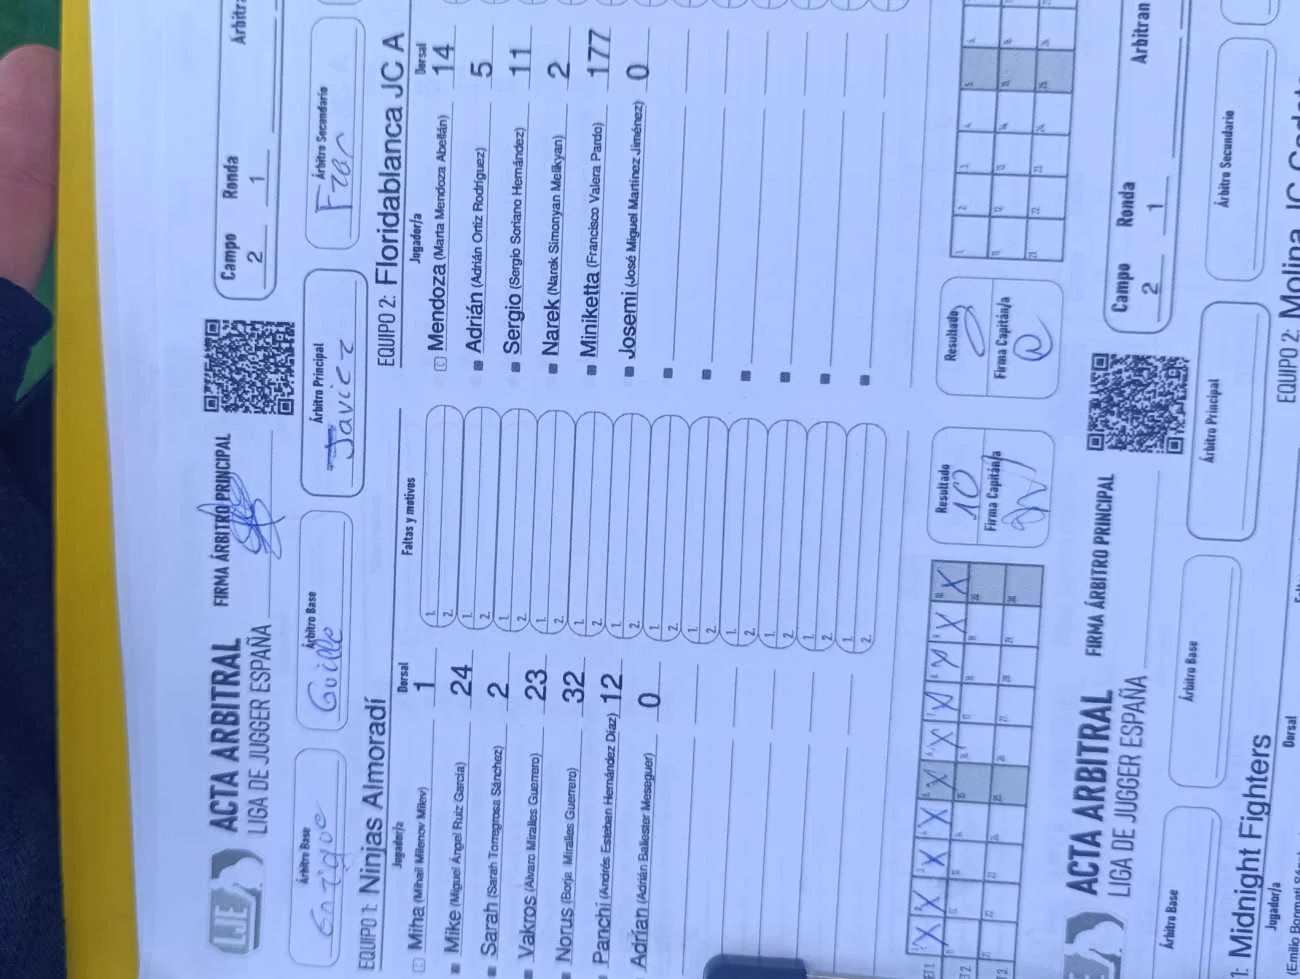 LJE
ACTA ARBITRAL
LIGA DE JUGGER ESPAÑA
FIRMA ÁRBITRO PRINCIPAL
Campo
2
Ronda
1
Árbitro Base
Enrique
Árbitro Base
Guille
Árbitro Principal
Javier
Árbitro Secundario
Fran
EQUIPO 1: Ninjas Almoradí
Jugador/a Dorsal Faltas y motivos
Miha (Mihail Milenov Milev) 1
Mike (Miguel Ángel Ruiz García) 24
Sarah (Sarah Torregrosa Sánchez) 2
Vakros (Álvaro Miralles Guerrero) 23
Norus (Borja Miralles Guerrero) 32
Panchi (Andrés Esteban Hernández Díaz) 12
Adrian (Adrián Ballester Meseguer) 0
Resultado
10
Firma Capitán/a
EQUIPO 2: Floridablanca JC A
Jugador/a Dorsal
Mendoza (Marta Mendoza Abellán) 14
Adrián (Adrián Ortiz Rodríguez) 5
Sergio (Sergio Soriano Hernández) 11
Narek (Narek Simonyan Melikyan) 2
Miniketta (Francisco Valera Pardo) 177
Josemi (José Miguel Martínez Jiménez) 0
Resultado
0
Firma Capitán/a
ACTA ARBITRAL
LIGA DE JUGGER ESPAÑA
FIRMA ÁRBITRO PRINCIPAL
Campo
2
Ronda
1
Árbitro Base
Árbitro Base
Árbitro Principal
Árbitro Secundario
1: Midnight Fighters
Jugador/a
Dorsal
EQUIPO 2: Molina JC